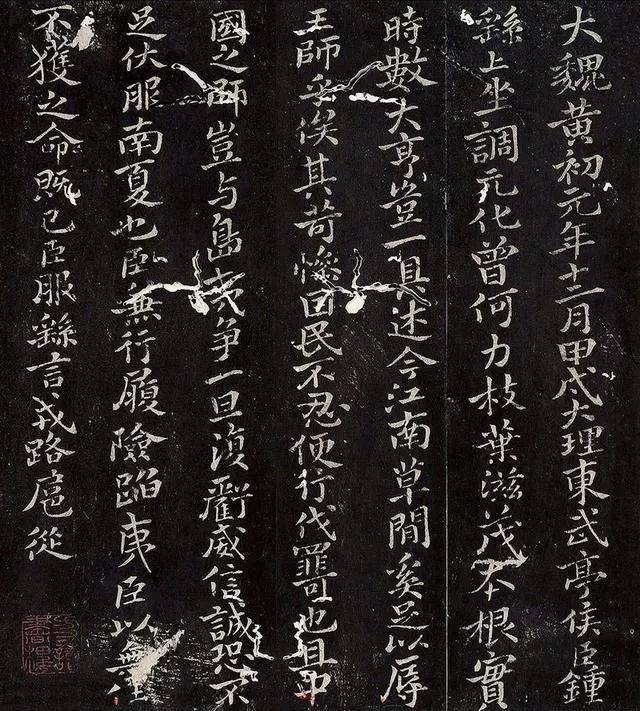 大魏黄初元年十二月甲戌大理東武亭侯臣鍾
繇上坐調元化曽何力枝葉滋茂本根實
時數大亨豈一具述今江南草間奚足以辱
王師乎俟其苛慘因民不忍便行伐罪可也且中
國之師豈与島夷争一旦須齊威信誠恐不
足伏服南夏也臣無行履險蹈夷臣以無任
不獲之命既已臣服繇言戎路扈從